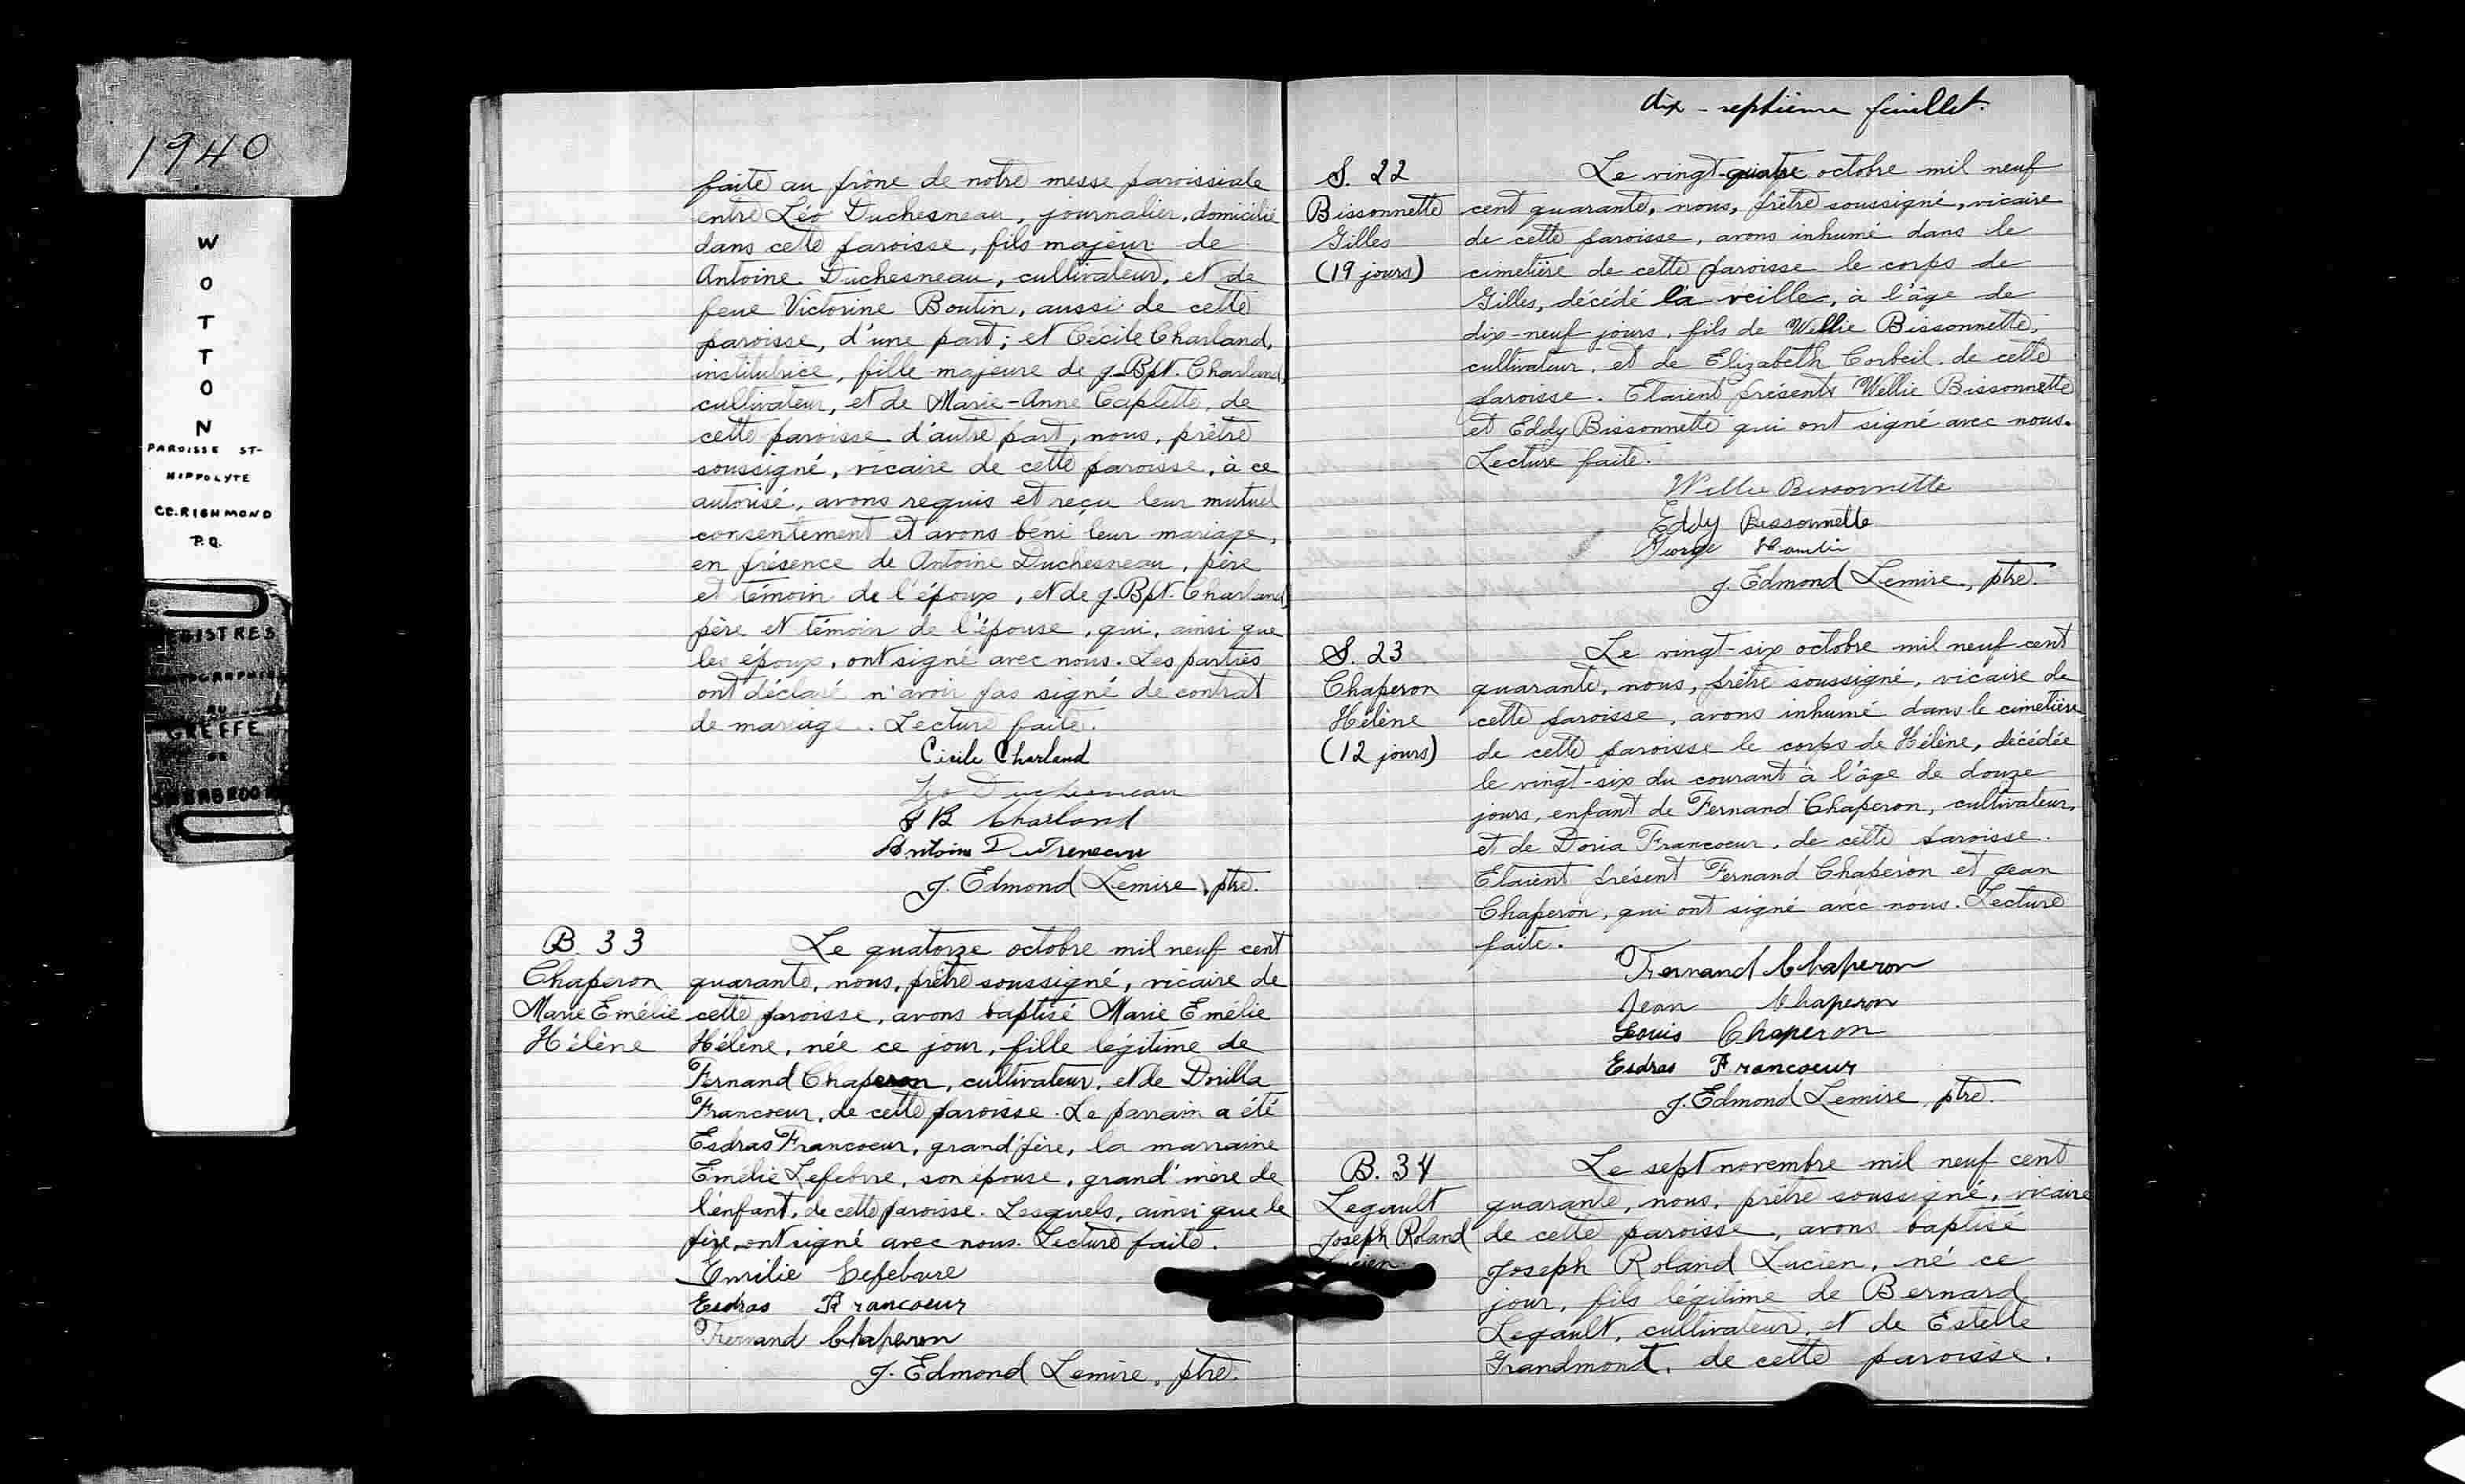 1940
W
O
T
T
O
N
PAROISSE ST-
HIPPOLYTE
CC. RICHMOND
P.Q.
REGISTRES
AU
GREFFE
DE
SHERBROOKE
faite au prône de notre messe paroissiale
entre Léo Duchesneau, journalier, domicilié
dans cette paroisse, fils majeur de
Antoine Duchesneau, cultivateur, et de
feue Victorine Boutin, aussi de cette
paroisse, d'une part; et Cécile Charland,
institutrice, fille majeure de J.-Bpt. Charland,
cultivateur, et de Marie-Anne Caplette, de
cette paroisse d'autre part, nous, prêtre
soussigné, vicaire de cette paroisse, à ce
autorisé, avons requis et reçu leur mutuel
consentement et avons béni leur mariage,
en présence de Antoine Duchesneau, père
et témoin de l'époux, et de J.-Bpt. Charland,
père et témoin de l'épouse, qui, ainsi que
les époux, ont signé avec nous. Les parties
ont déclaré n'avoir pas signé de contrat
de mariage. Lecture faite.
Cécile Charland
Léo Duchesneau
J B Charland
Antoine
J. Edmond Lemire, ptre.
B. 33
Chaperon
Marie Emélie
Hélène
Le quatorze octobre mil neuf cent
quarante, nous, prêtre soussigné, vicaire de
cette paroisse, avons baptisé Marie Emélie
Hélène, née ce jour, fille légitime de
Fernand Chaperon, cultivateur, et de Dorilla
Francoeur, de cette paroisse. Le parrain a été
Esdras Francoeur, grand'père, la marraine
Emélie Lefebvre, son épouse, grand'mère de
l'enfant, de cette paroisse. Lesquels, ainsi que le
père, ont signé avec nous. Lecture faite.
Emilie Lefebvre
Esdras Francoeur
Fernand Chaperon
J. Edmond Lemire, ptre.
dix-septième feuillet.
S. 22
Bissonnette
Gilles
(19 jours)
Le vingt-quatre octobre mil neuf
cent quarante, nous, prêtre soussigné, vicaire
de cette paroisse, avons inhumé dans le
cimetière de cette paroisse le corps de
Gilles, décédé la veille, à l'âge de
dix-neuf jours, fils de Wellie Bissonnette,
cultivateur, et de Elizabeth Corbeil, de cette
paroisse. Etaient présents Wellie Bissonnette
et Eddy Bissonnette qui ont signé avec nous.
Lecture faite.
Wellie Bissonnette
Eddy Bissonnette
George Hamlin
J. Edmond Lemire, ptre.
S. 23
Chaperon
Hélène
(12 jours)
Le vingt-six octobre mil neuf cent
quarante, nous, prêtre soussigné, vicaire de
cette paroisse, avons inhumé dans le cimetière
de cette paroisse le corps de Hélène, décédée
le vingt-six du courant à l'âge de douze
jours, enfant de Fernand Chaperon, cultivateur,
et de Doria Francoeur, de cette paroisse.
Etaient présent Fernand Chaperon et Jean
Chaperon, qui ont signé avec nous. Lecture
faite.
Fernand Chaperon
Jean Chaperon
Louis Chaperon
Esdras Francoeur
J. Edmond Lemire, ptre.
B. 34
Legault
Joseph Roland
Lucien
Le sept novembre mil neuf cent
quarante, nous, prêtre soussigné, vicaire
de cette paroisse, avons baptisé
Joseph Roland Lucien, né ce
jour, fils légitime de Bernard
Legault, cultivateur, et de Estelle
Grandmont, de cette paroisse.